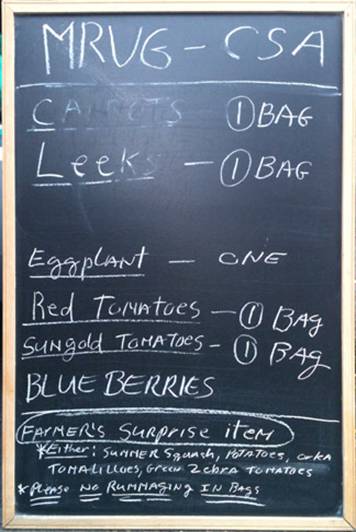 MRUG - CSA
CARROTS ① BAG
Leeks - ① BAG
Eggplant - ONE
Red Tomatoes - ① BAg
Sungold Tomatoes - ① BAg
BLUEBERRIES
FARMER'S SURPRISE iTEM
*Either: SUMMER Squash, POTATOES, OKRA
TOMATILLOES, Green Zebra TOMATOES
*Please NO RUMMAGING IN BAGS